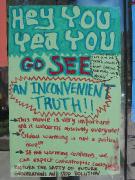 Hey You
Yea You
GO SEE
AN INCONVENIENT
TRUTH!!
→ This movie is very important
and it concerns absolutely everyone!
→ Global warming is not a political
issue!!!
→ If the warming continues, we
can expect catastrophic
FUTURE. THE SAFETY OF FUTURE
GENERATIONS